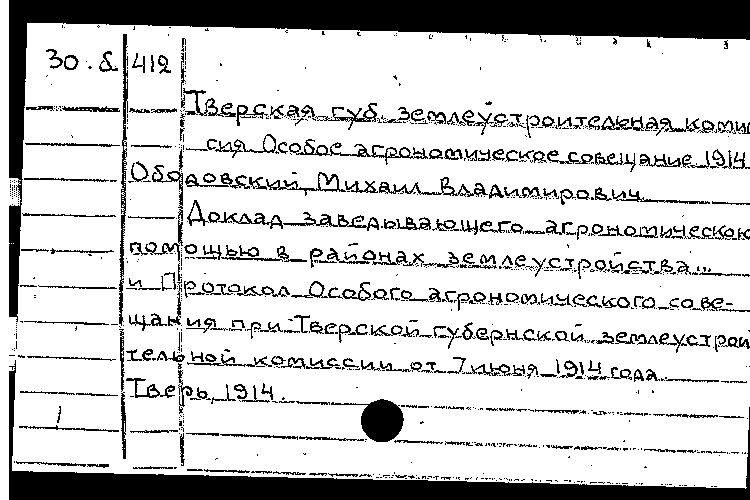 30.8 412
Тверская губ. землеустроительная комис
сия Особое агрономическое совещание 1914
Ободовский, Михаил Владимирович
Доклад заведывающего агрономическою
помощью в районах землеустройства...
и Протокол Особого агрономического сове-
щания при Тверской губернской землеустрои
тельной комиссии от 7 июня 1914 года.
Тверь, 1914.
1